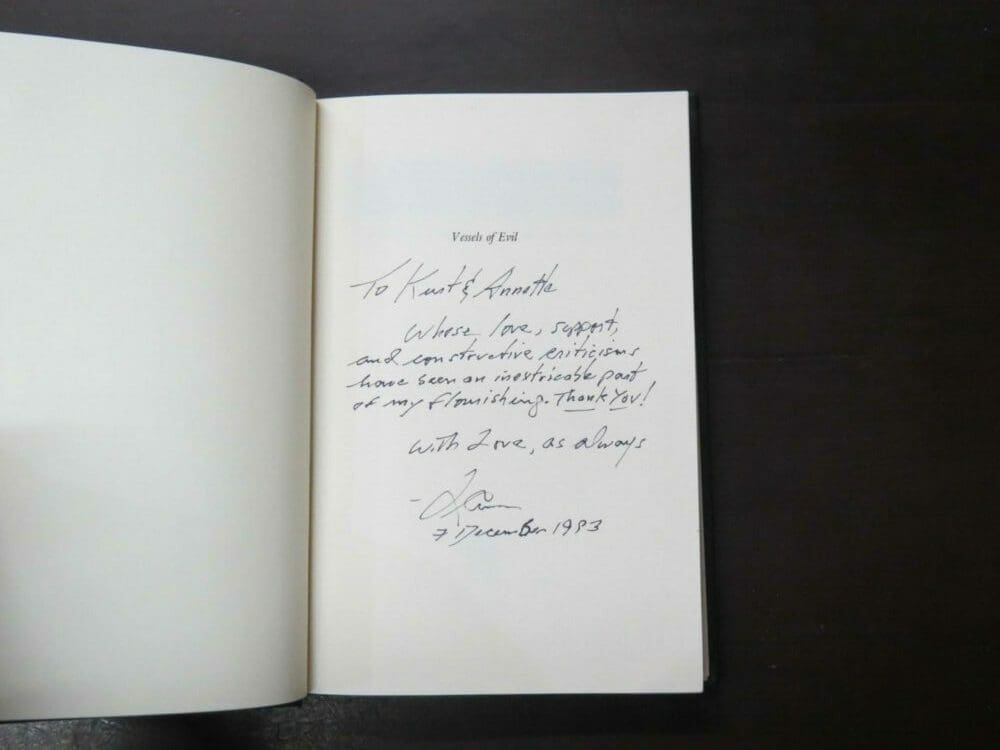 Vessels of Evil
To Kurt & Annette
whose love, support,
and constructive criticisms
have been an inextricable part
of my flourishing. Thank You!
With Love, as always
7 December 1993